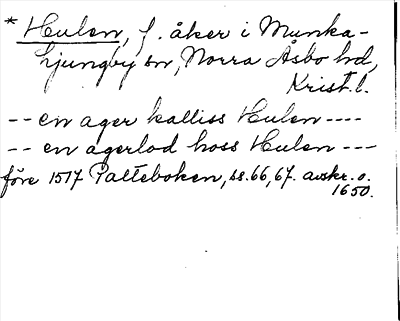 * Hulen, f. åker i Munka-
Ljungby sn, Norra Åsbo hd,
Krist.l.
-- en ager kalliss Hulen ----
-- en agerlod hoss Hulen ---
före 1517 Palteboken, ss.66,67. avskr. o.
1650.